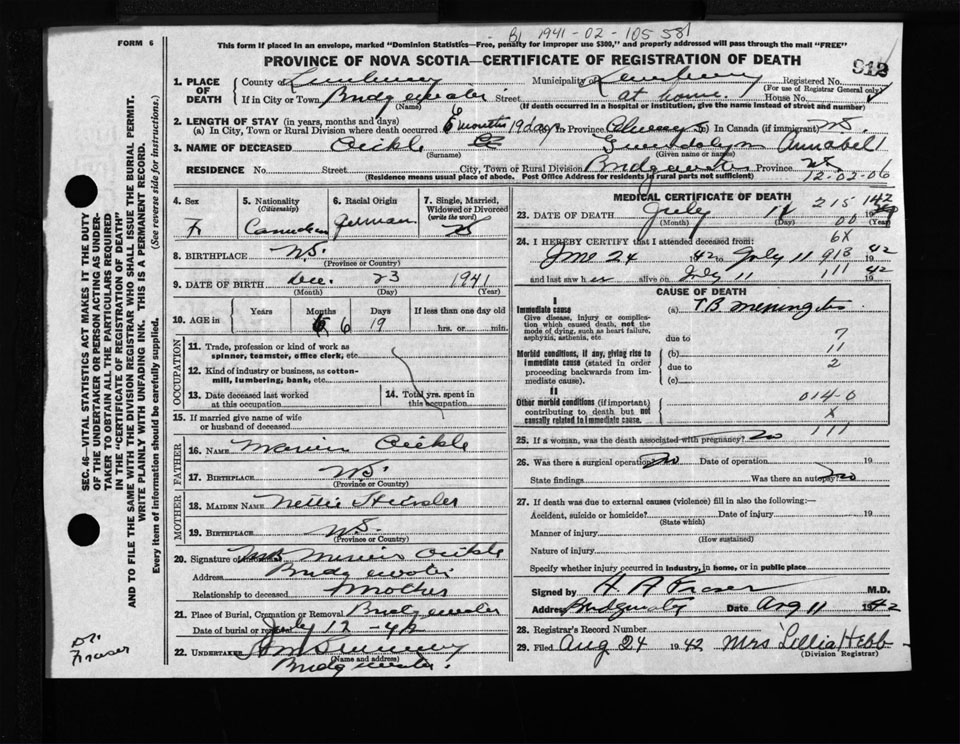 B1 1941-02-105581
FORM 6
This form if placed in an envelope, marked "Dominion Statistics—Free, penalty for improper use $300," and properly addressed will pass through the mail "FREE"
PROVINCE OF NOVA SCOTIA—CERTIFICATE OF REGISTRATION OF DEATH
912
SEC. 46—VITAL STATISTICS ACT MAKES IT THE DUTY
OF THE UNDERTAKER OR PERSON ACTING AS UNDER-
TAKER TO OBTAIN ALL THE PARTICULARS REQUIRED
IN THE "CERTIFICATE OF REGISTRATION OF DEATH"
AND TO FILE THE SAME WITH THE DIVISION REGISTRAR WHO SHALL ISSUE THE BURIAL PERMIT.
WRITE PLAINLY WITH UNFADING INK. THIS IS A PERMANENT RECORD.
Every item of information should be carefully supplied. (See reverse side for instructions.)
1. PLACE OF DEATH County of Lunenburg Municipality of Lunenburg Registered No.
(For use of Registrar General only)
If in City or Town Bridgewater Street at home House No.
(Name) (If death occurred in a hospital or institution, give the name instead of street and number)
2. LENGTH OF STAY (in years, months and days)
(a) In City, Town or Rural Division where death occurred 6 months 19 days In Province Always In Canada (if immigrant) N.S.
3. NAME OF DECEASED Eickle Gwendolyn Annabell
(Surname) (Given name or names)
RESIDENCE No. Street City, Town or Rural Division Bridgewater Province N.S.
(Residence means usual place of abode. Post Office Address for residents in rural parts not sufficient) 12-02-06
4. Sex F
5. Nationality (Citizenship) Canadian
6. Racial Origin German
7. Single, Married, Widowed or Divorced (write the word) S
8. BIRTHPLACE N.S.
(Province or Country)
9. DATE OF BIRTH Dec. 23 1941
(Month) (Day) (Year)
10. AGE in Years Months 6 Days 19 If less than one day old
hrs. or min.
OCCUPATION
11. Trade, profession or kind of work as spinner, teamster, office clerk, etc.
12. Kind of industry or business, as cotton-mill, lumbering, bank, etc.
13. Date deceased last worked at this occupation 14. Total yrs. spent in this occupation
15. If married give name of wife or husband of deceased
FATHER
16. NAME Eickle
17. BIRTHPLACE N.S.
(Province or Country)
MOTHER
18. MAIDEN NAME Nellie
19. BIRTHPLACE N.S.
(Province or Country)
20. Signature of Mrs Eickle
Address Bridgewater
Relationship to deceased Mother
21. Place of Burial, Cremation or Removal Bridgewater
Date of burial or removal July 12-42
22. UNDERTAKER
(Name and address)
Bridgewater
Dr. Fraser
MEDICAL CERTIFICATE OF DEATH
23. DATE OF DEATH July 11 1942
(Month) (Day) (Year)
215 142
06
24. I HEREBY CERTIFY that I attended deceased from:
6X
June 24 1942 to July 11 1942
913
and last saw her alive on July 11 1942
111
CAUSE OF DEATH
I
Immediate cause (a) T.B. Meningitis
Give disease, injury or complication which caused death, not the mode of dying, such as heart failure, asphyxia, asthenia, etc.
due to 7
Morbid conditions, if any, giving rise to immediate cause (stated in order proceeding backwards from immediate cause).
(b) 11
due to 2
(c)
II
Other morbid conditions (if important) contributing to death but not causally related to immediate cause.
014-0
X
111
25. If a woman, was the death associated with pregnancy? no
26. Was there a surgical operation? no Date of operation 19
State findings Was there an autopsy? no
27. If death was due to external causes (violence) fill in also the following:—
Accident, suicide or homicide? Date of injury 19
(State which)
Manner of injury
(How sustained)
Nature of injury
Specify whether injury occurred in industry, in home, or in public place
Signed by H A Fraser M.D.
Address Bridgewater Date Aug 11 1942
28. Registrar's Record Number
29. Filed Aug 24 1942 Mrs Lillia Hebb
(Division Registrar)